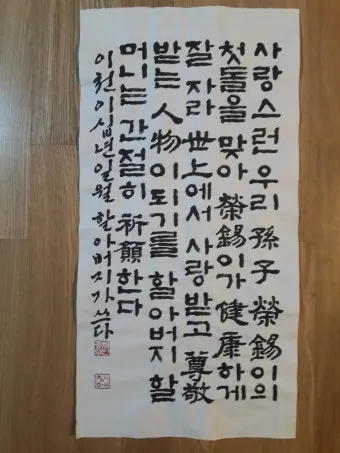 사랑스런 우리 孫子 榮錫이의
첫돌을 맞아 榮錫이가 健康하게
잘 자라 世上에서 사랑받고 尊敬
받는 人物이 되기를 할아버지 할
머니는 간절히 祈願한다
이천이십년 일월 할아버지가 쓰다